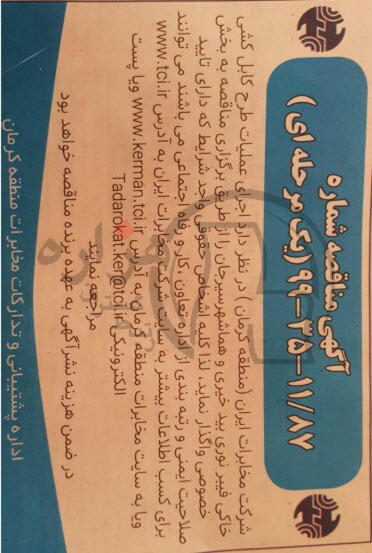 آگهی مناقصه شماره
۹۹-۳۵-۱۱/۸۷ (یک مرحله ای)
شرکت مخابرات ایران (منطقه کرمان ) در نظر دارد اجرای عملیات طرح کابل کشی
خاکی فیبر نوری بید خیری و هماشهرسیرجان را از طریق برگزاری مناقصه به بخش
خصوصی واگذار نماید، لذا کلیه اشخاص حقوقی واجد شرایط که دارای تایید
صلاحیت ایمنی و رتبه بندی از اداره تعاون ،کار و رفاه اجتماعی می باشند می توانند
برای کسب اطلاعات بیشتر به سایت شرکت مخابرات ایران به آدرس www.tci.ir
ویا به سایت مخابرات منطقه کرمان به آدرس www.kerman.tci.ir ویا پست
الکترونیکی Tadarokat.ker@tci.ir
مراجعه نمایند
در ضمن هزینه نشرآگهی به عهده برنده مناقصه خواهد بود
اداره پشتیبانی و تدارکات مخابرات منطقه کرمان